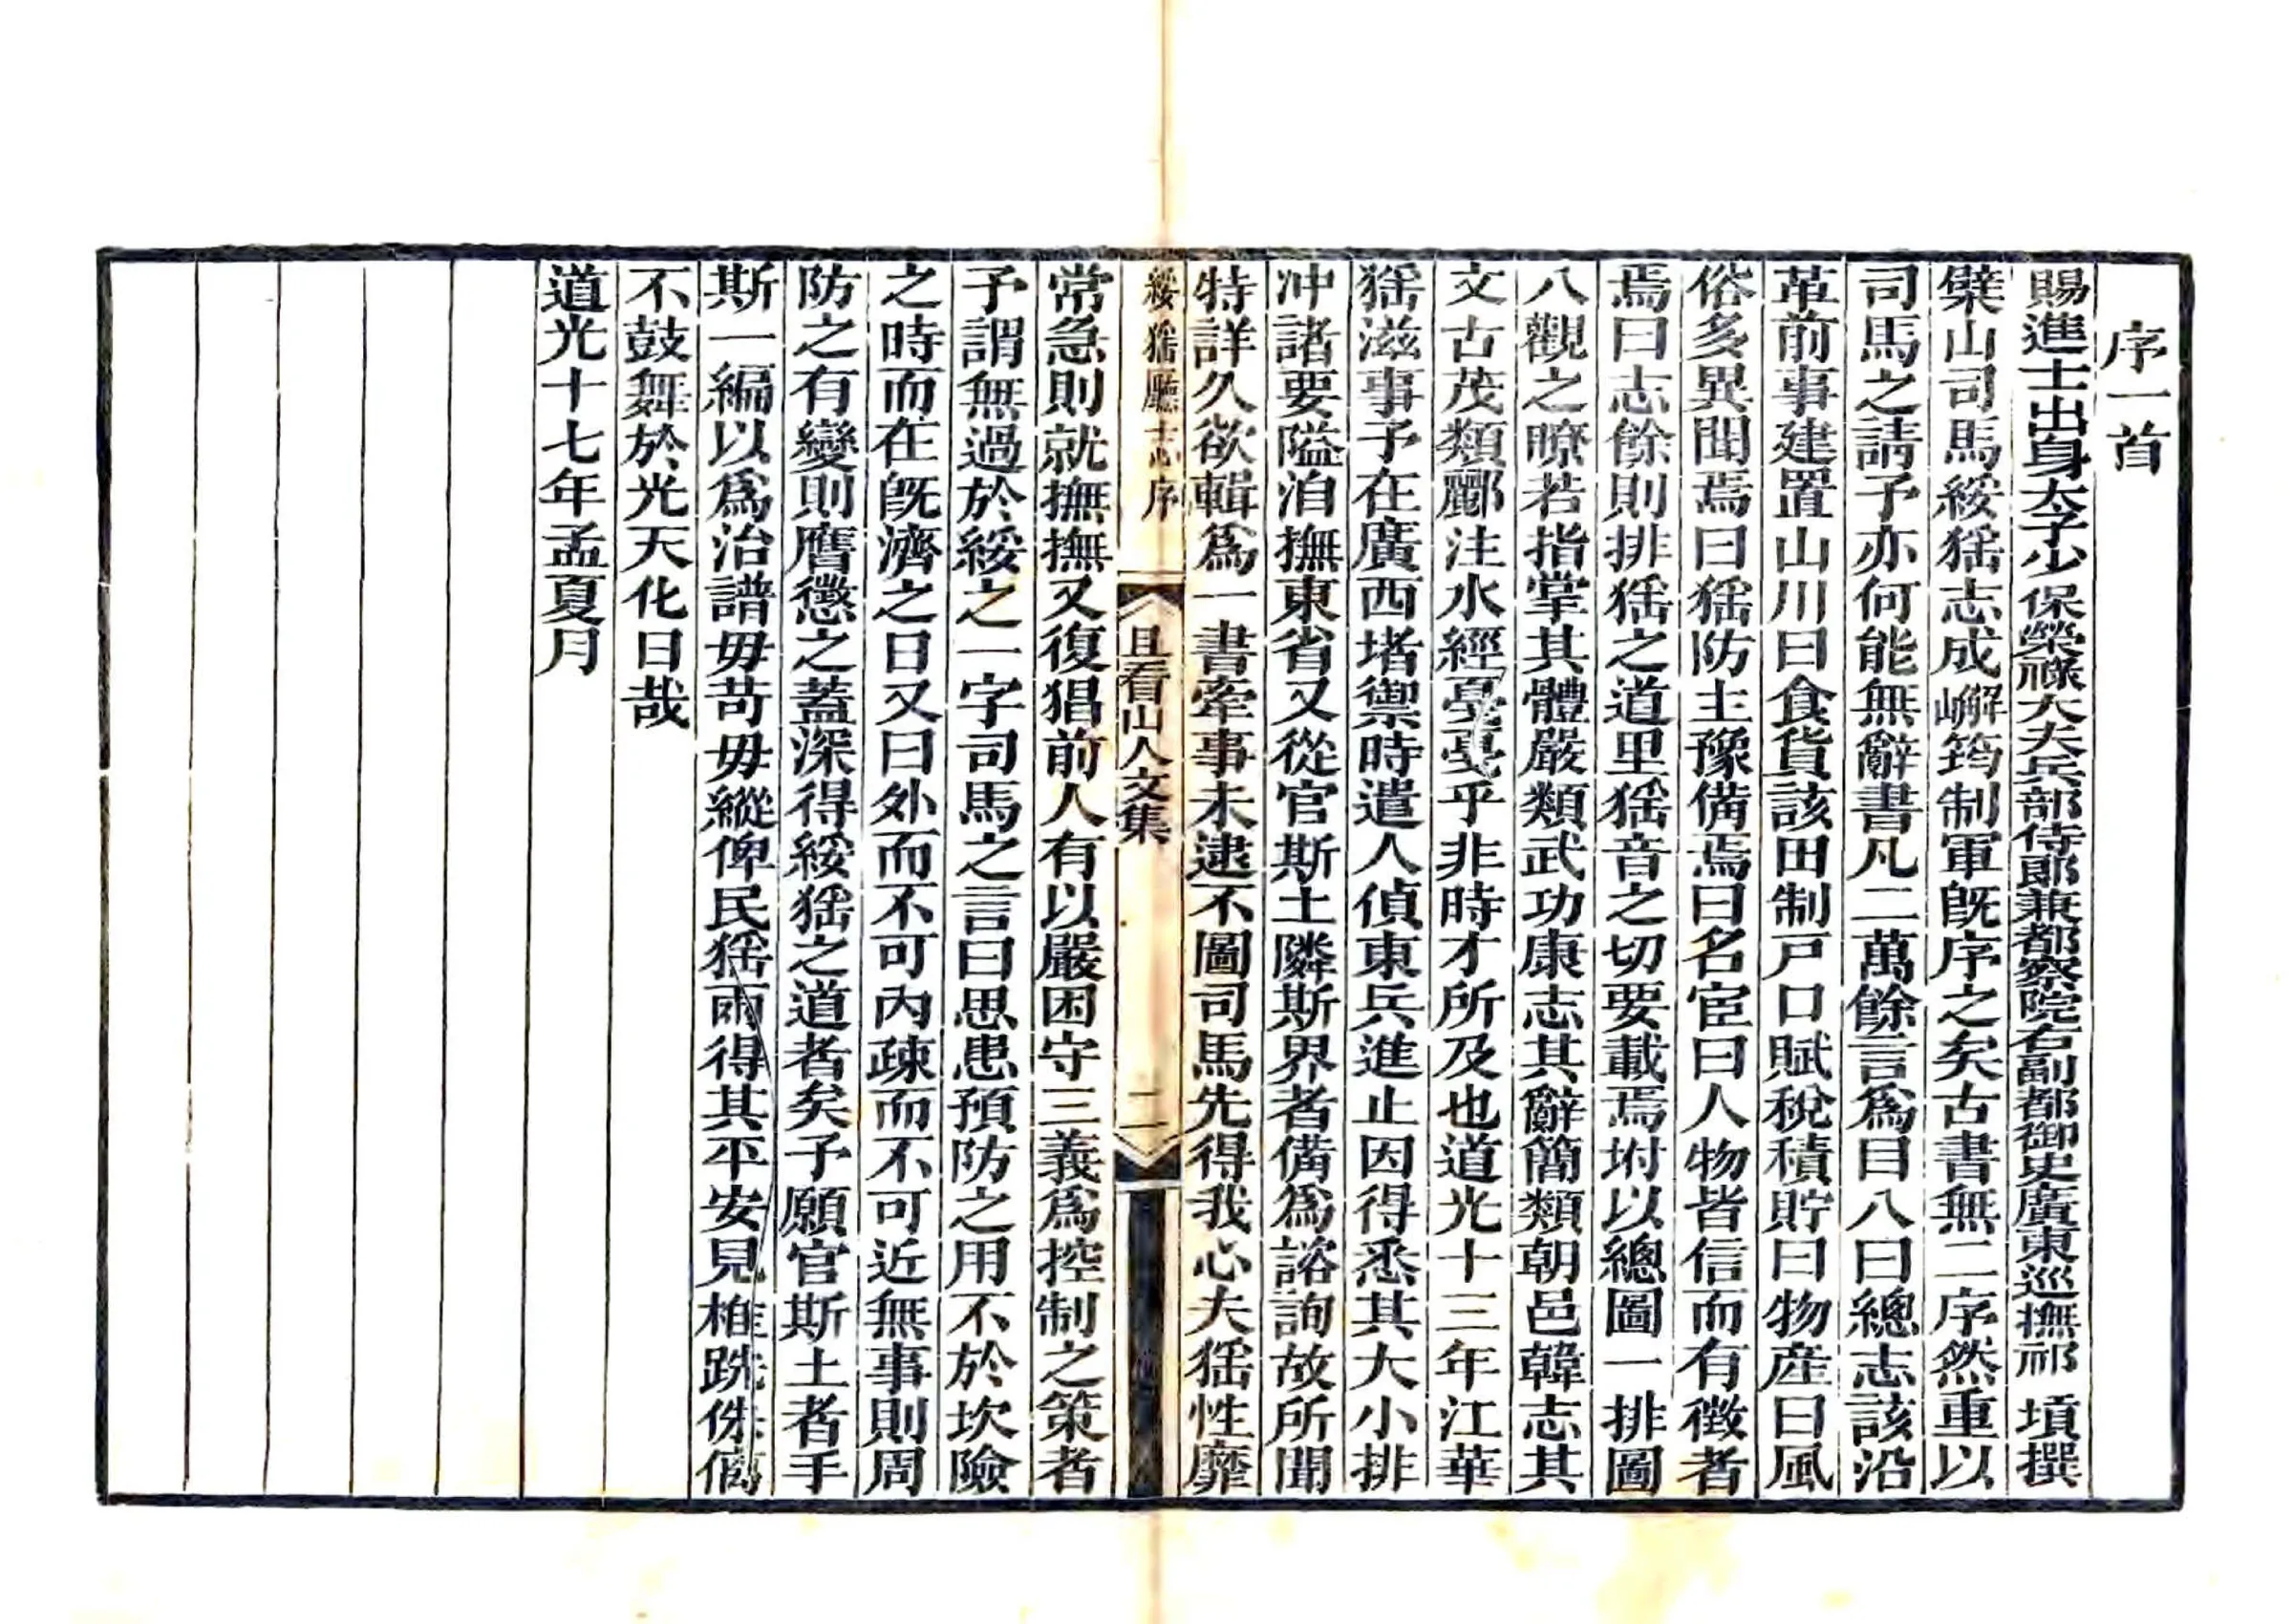 序一首
賜進士出身太子少保榮祿大夫兵部侍郎兼都察院右副都御史廣東巡撫祁 墳撰
檗山司馬綏猺志成嶰筠制軍旣序之矣古書無二序然重以
司馬之請予亦何能無辭書凡二萬餘言爲目八曰總志該沿
革前事建置山川曰食貨該田制戸口賦稅積貯曰物産曰風
俗多異聞焉曰猺防主豫備焉曰名宦曰人物皆信而有徵者
焉曰志餘則排猺之道里猺音之切要載焉坿以總圖一排圖
八觀之瞭若指掌其體嚴類武功康志其辭簡類朝邑韓志其
文古茂類酈注水經戞戞乎非時才所及也道光十三年江華
猺滋事予在廣西堵禦時遣人偵東兵進止因得悉其大小排
冲諸要隘洎撫東省又從官斯土隣斯界者備爲諮詢故所聞
特詳久欲輯爲一書牽事未逮不圖司馬先得我心夫猺性靡
綏猺廳志序
且看山人文集
二
常急則就撫撫又復猖前人有以嚴困守三義爲控制之策者
予謂無過於綏之一字司馬之言曰思患預防之用不於坎險
之時而在旣濟之日又曰外而不可內疎而不可近無事則周
防之有變則膺懲之蓋深得綏猺之道者矣予願官斯土者手
斯一編以爲治譜毋苛毋縱俾民猺兩得其平安見椎跣侏㒧
不鼓舞於光天化日哉
道光十七年孟夏月